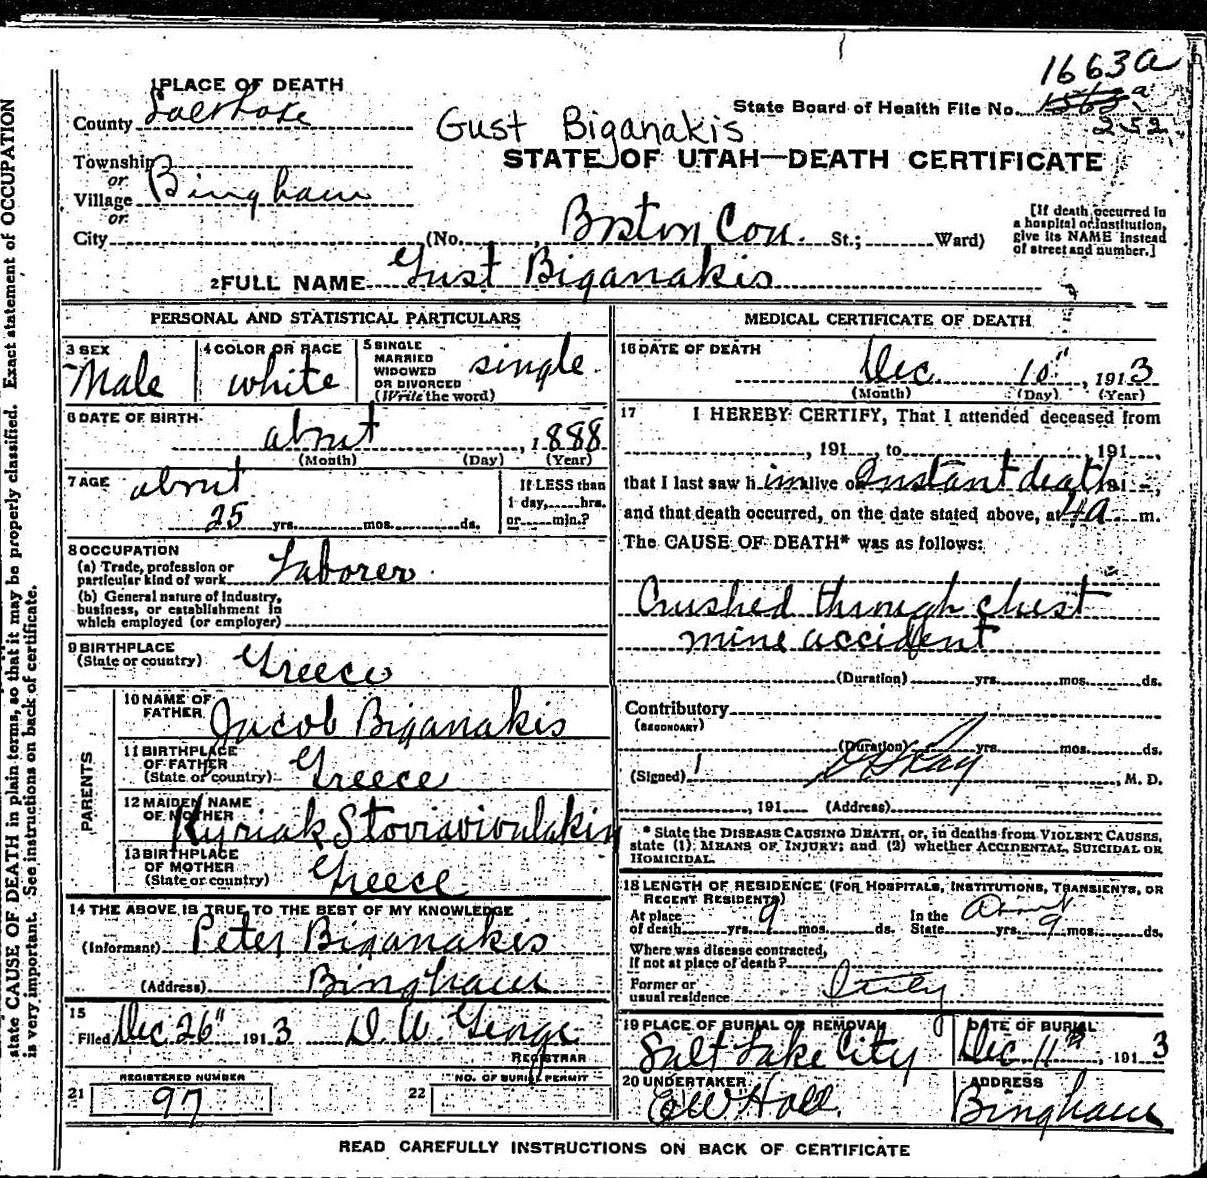 1663a
1 PLACE OF DEATH
State Board of Health File No. 1563a
252
County Salt Lake
Gust Biganakis
STATE OF UTAH—DEATH CERTIFICATE
Township
or
Village Bingham
or
City (No. Boston Con. St.; Ward)
[If death occurred in
a hospital or institution,
give its NAME instead
of street and number.]
2 FULL NAME Gust Biganakis
PERSONAL AND STATISTICAL PARTICULARS
3 SEX
Male
4 COLOR OR RACE
white
5 SINGLE
MARRIED
WIDOWED
OR DIVORCED
(Write the word)
single
6 DATE OF BIRTH
about , 1888
(Month) (Day) (Year)
7 AGE about
25 yrs. mos. ds.
If LESS than
1 day, hrs.
or min.?
8 OCCUPATION
(a) Trade, profession or
particular kind of work Laborer
(b) General nature of Industry,
business, or establishment in
which employed (or employer)
9 BIRTHPLACE
(State or country) Greece
PARENTS
10 NAME OF
FATHER Jacob Biganakis
11 BIRTHPLACE
OF FATHER
(State or country) Greece
12 MAIDEN NAME
OF MOTHER Kyriak
13 BIRTHPLACE
OF MOTHER
(State or country) Greece
14 THE ABOVE IS TRUE TO THE BEST OF MY KNOWLEDGE
(Informant) Peter Biganakis
(Address) Bingham
15
Filed Dec 26" 1913 D. W. George
REGISTRAR
REGISTERED NUMBER
21 97
NO. OF BURIAL PERMIT
22
MEDICAL CERTIFICATE OF DEATH
16 DATE OF DEATH
Dec 10" , 1913
(Month) (Day) (Year)
17 I HEREBY CERTIFY, That I attended deceased from
, 191 , to 191 ,
that I last saw him alive on Instant death 191 ,
and that death occurred, on the date stated above, at 4a m.
The CAUSE OF DEATH* was as follows:
Crushed through chest
mine accident
(Duration) yrs. mos. ds.
Contributory
(SECONDARY)
(Duration) yrs. mos. ds.
(Signed) , M. D.
, 191 (Address)
* State the DISEASE CAUSING DEATH, or, in deaths from VIOLENT CAUSES,
state (1) MEANS OF INJURY; and (2) whether ACCIDENTAL, SUICIDAL OR
HOMICIDAL.
18 LENGTH OF RESIDENCE (FOR HOSPITALS, INSTITUTIONS, TRANSIENTS, OR
RECENT RESIDENTS)
At place
of death yrs. 9 mos. ds.
In the
State about yrs. 9 mos. ds.
Where was disease contracted,
if not at place of death?
Former or
usual residence
19 PLACE OF BURIAL OR REMOVAL
Salt Lake City
DATE OF BURIAL
Dec 11th , 1913
20 UNDERTAKER
E W Hall
ADDRESS
Bingham
READ CAREFULLY INSTRUCTIONS ON BACK OF CERTIFICATE
state CAUSE OF DEATH in plain terms, so that it may be properly classified. Exact statement of OCCUPATION
is very important. See instructions on back of certificate.